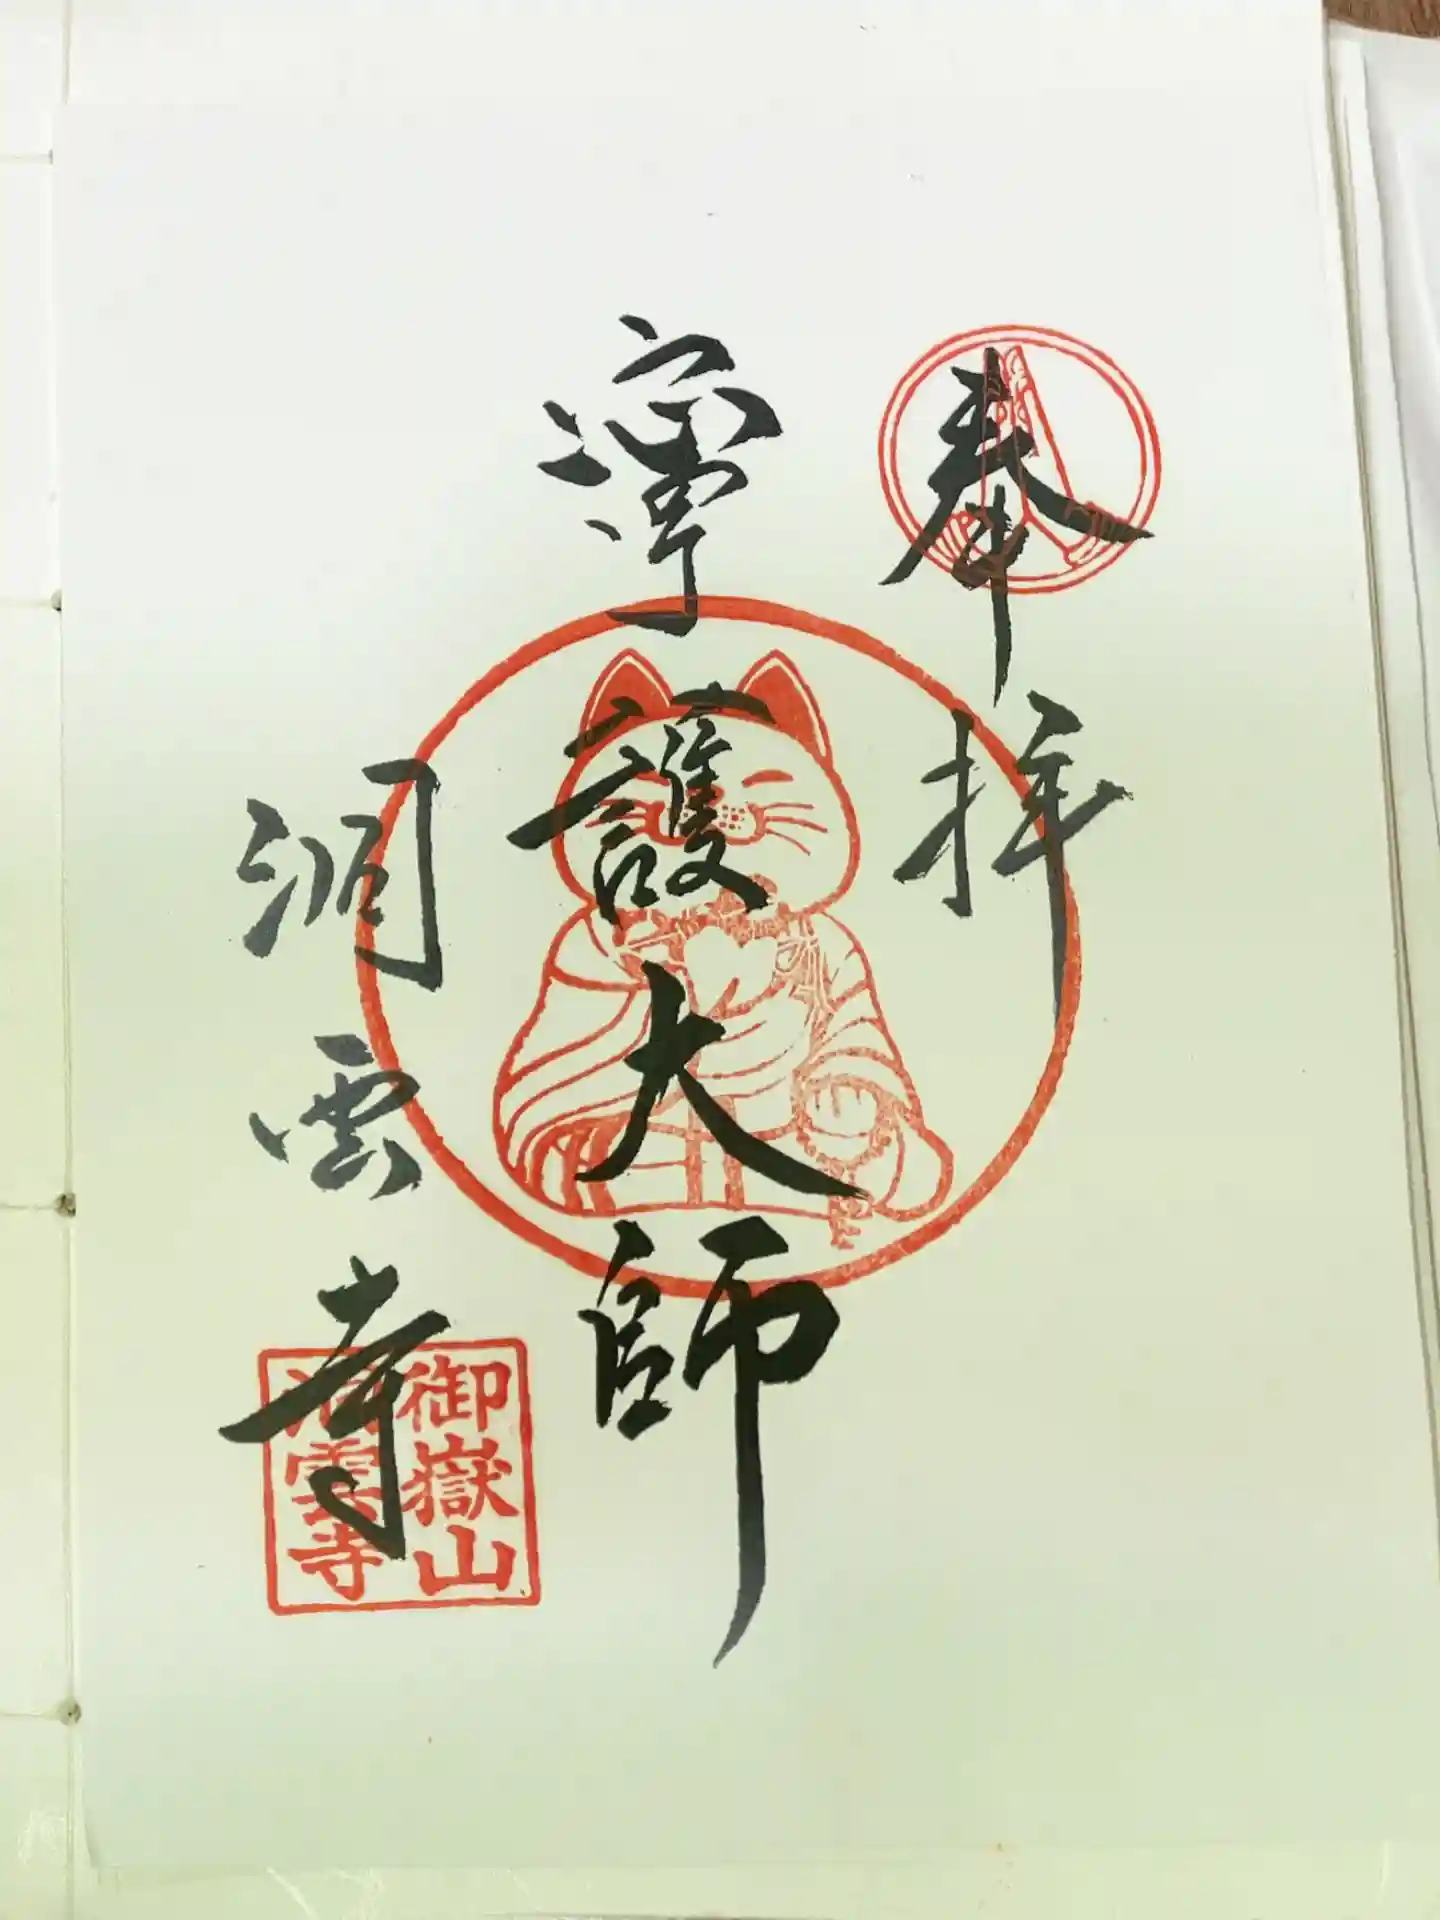 奉拝
護大師
洞雲寺
御嶽山
洞雲寺